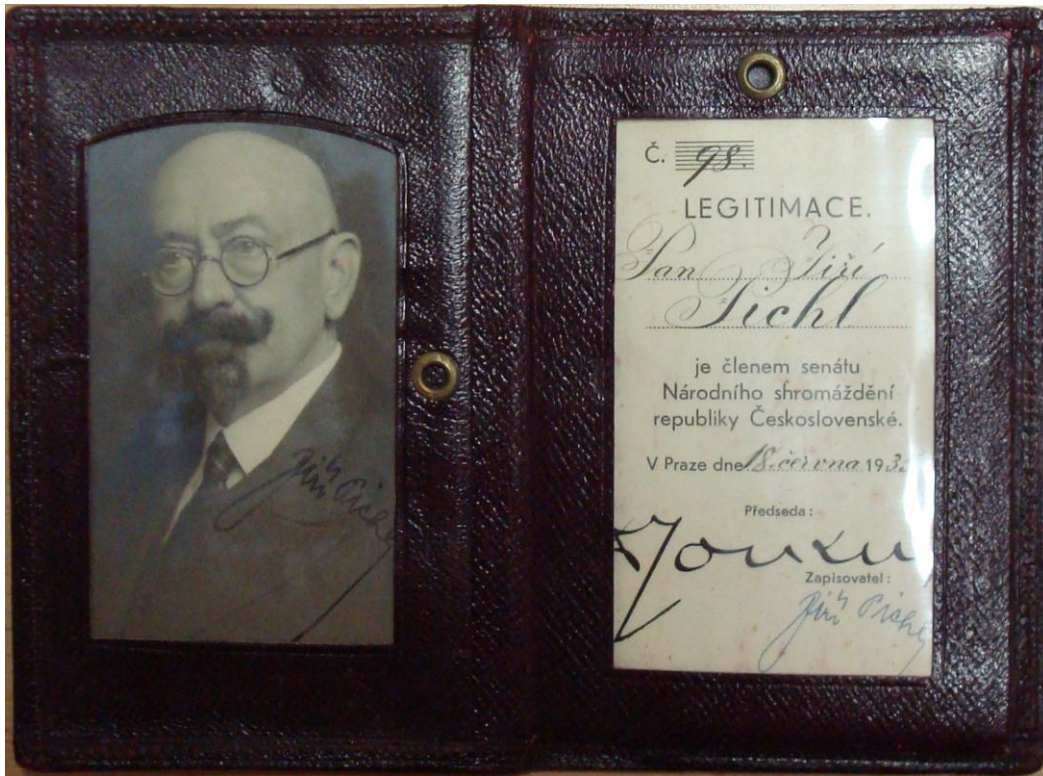 Jiří Pichl
Č. 98.
LEGITIMACE.
Pan Jiří
Pichl
je členem senátu
Národního shromáždění
republiky Československé.
V Praze dne 18. června 193
Předseda:
Zapisovatel:
Jiří Pichl